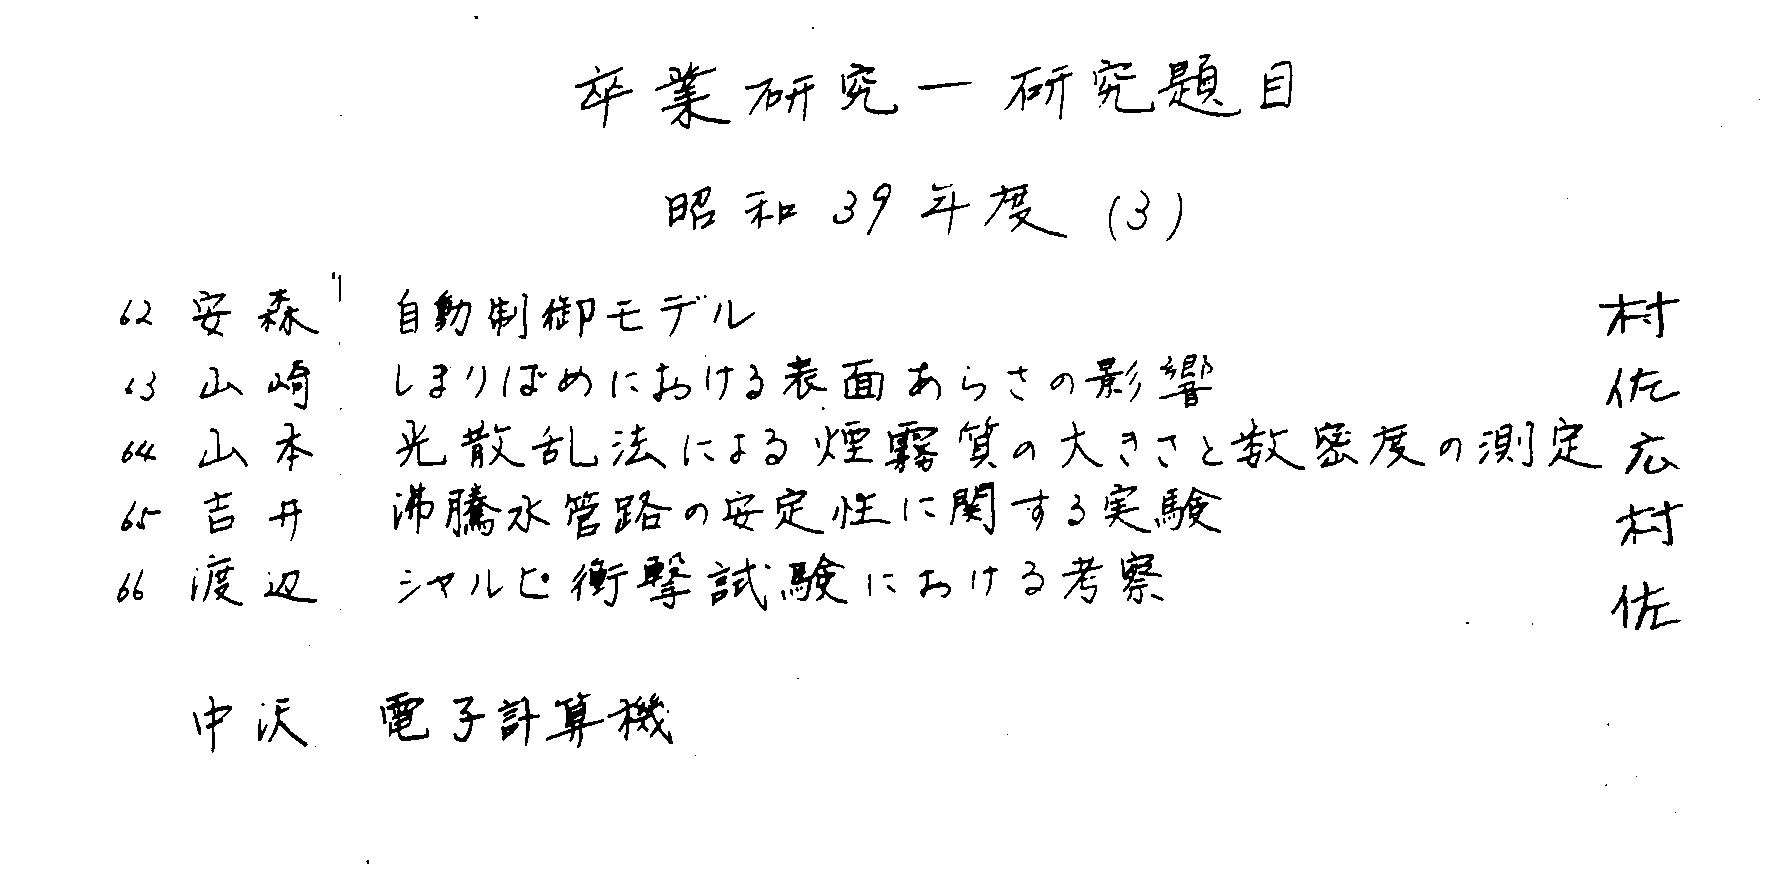 卒業研究一研究題目
昭和39年度(3)
62 安森 自動制御モデル 村
63 山崎 しまりばめにおける表面あらさの影響 佐
64 山本 光散乱法による煙霧質の大きさと数密度の測定 広
65 吉井 沸騰水管路の安定性に関する実験 村
66 渡辺 シャルピ衝撃試験における考察 佐
中沢 電子計算機